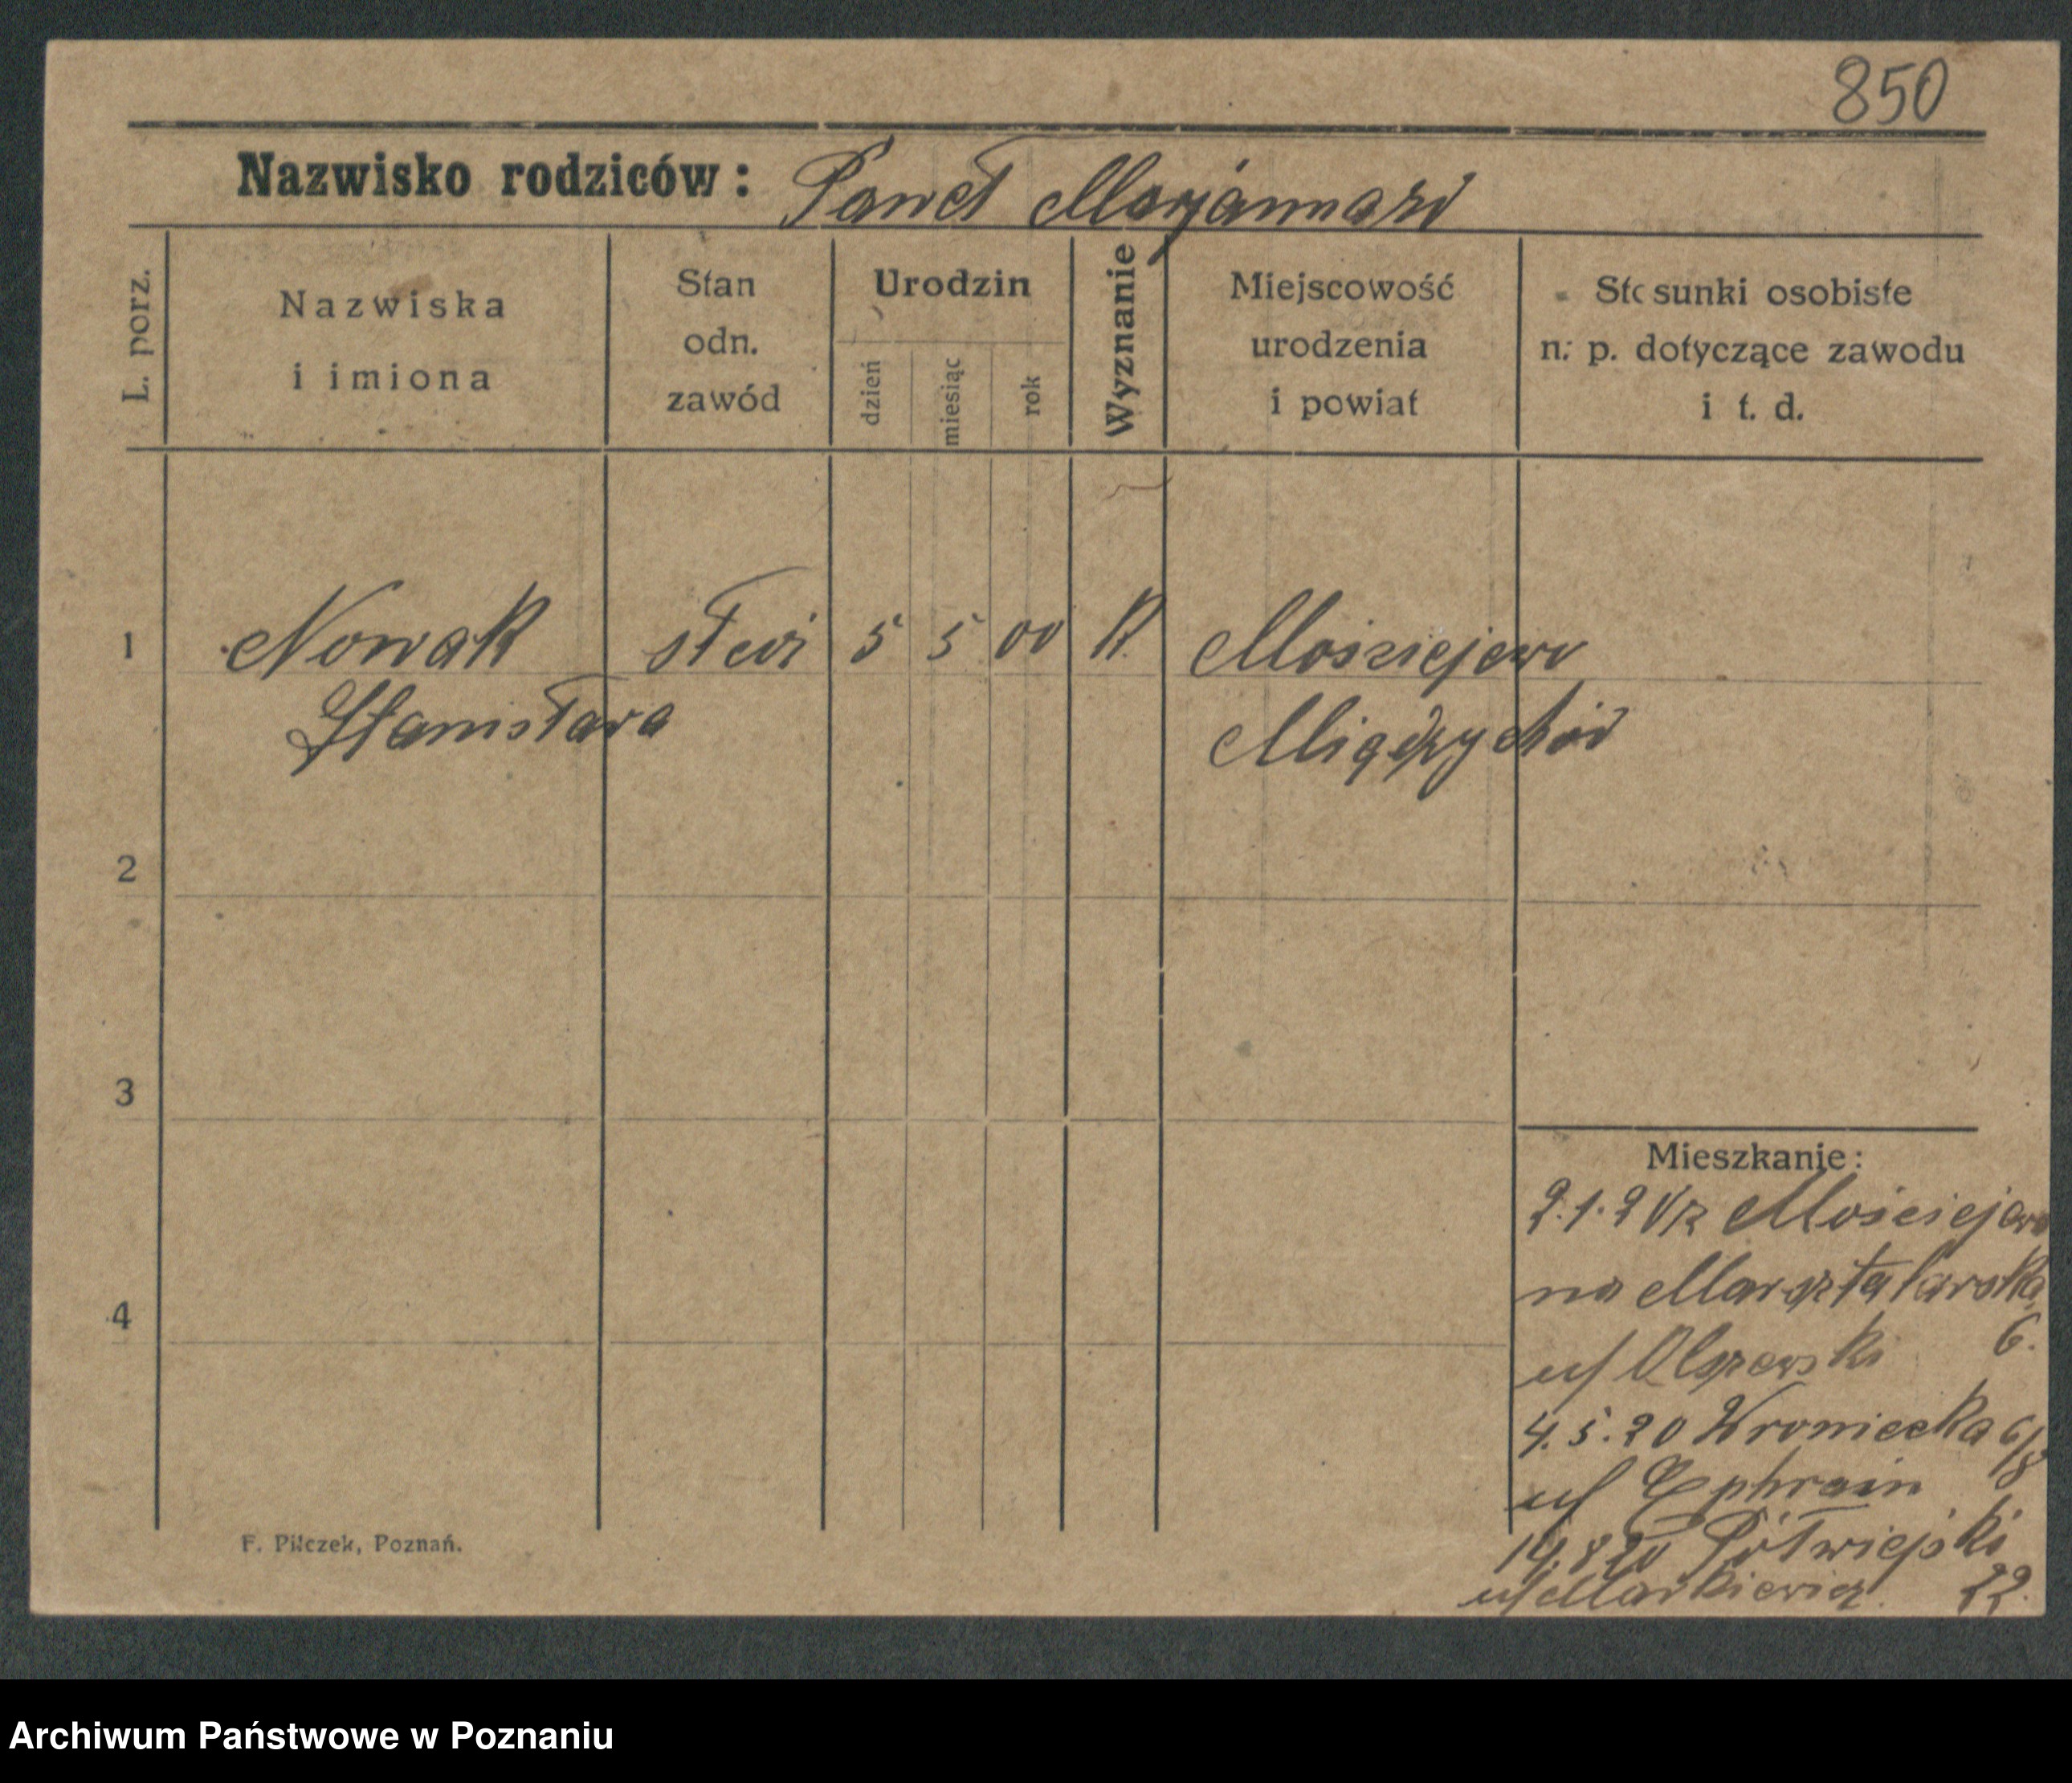 850
Nazwisko rodziców: Paweł Maryanna
L. porz.
Nazwiska
i imiona
Stan
odn.
zawód
Urodzin
dzień
miesiąc
rok
Wyznanie
Miejscowość
urodzenia
i powiat
Stosunki osobiste
n. p. dotyczące zawodu
i t. d.
1
Nowak
Stanisława
5 5 00 K.
Mościejewo
Międzychód
2
3
4
Mieszkanie:
Mościejewo
na Marsztalarska
6.
u/ Olszewski
4.5.20 Wroniecka 6/8
u/ Ephraim
14.8.20 Półwiejski
u/ Markiewicz. 22.
F. Pilczek, Poznań.
Archiwum Państwowe w Poznaniu